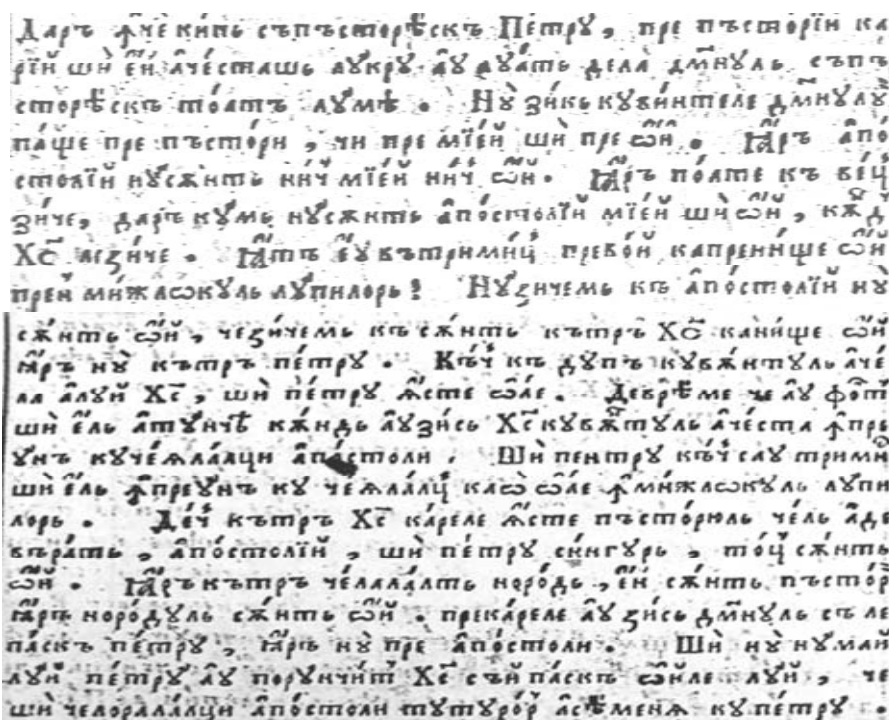 Даръ ꙟ҆че кипь съпъсторѣскъ Петрꙋ, пре пъсторїи ка
рїй шѝ е҆й а҆честашь лꙋкрꙋ а҆ꙋ лꙋа́ть дела дм҃нꙋль съпъ
сторѣскъ то́атъ лꙋмѣ. Нꙋ̀ зикь кꙋви́нтеле дм҃нꙋлꙋ
па́ще пре пъсто́ри, чи пре мїе́й шѝ пре ѻ҆й. Ꙗ҆ръ апо
столїй нꙋсѫ́нть ни́ч мїе́й ни́ч ѻ҆й. Ꙗ҆ръ по́ате къ ве́ц
зи́че, даръ кꙋмь нꙋсѫ́нть а҆по́столїй мїе́й шѝ ѻ҆й, кѫд
Хс҃ ле зи́че. Ꙗ҆тъ е҆ꙋ въ тримиц превой ка пренище ѻ҆й
прень мижлокꙋль лꙋпилорь! Нꙋ̀ зичемь къ а҆по́столїй нꙋ̀
сѫ́нть ѻ҆й, че зи́чемь къ сѫ́нть кътръ Хс҃ ка нище ѻ҆й
ꙗ҆ръ нꙋ̀ кътръ пе́трꙋ. Къч къ дꙋпъ кꙋвѫ́нтꙋль а҆че́
ла а҆лꙋй Хс҃, шѝ пе́трꙋ ꙗ҆сте ѻ҆а́е. Де врѣме че а҆ꙋ фост
шѝ е҆ль а҆тꙋнчѣ кѫ́ндь а҆ꙋ зи́сь Хс҃ кꙋвѫнтꙋль а҆че́ста ꙟ҆пре
ꙋнъ кꙋ че́ꙗлалци а҆по́столи. Шѝ пентрꙋ къч с'аꙋ трими
шѝ е҆ль ꙟ҆преꙋнъ кꙋ че́ꙗлалци ка ѻ҆ ѻ҆а́е ꙟ҆ мижлокꙋль лꙋпи
лорь. Де́ч кътръ Хс҃ ка́реле ꙗ҆сте пъсто́рюль че́ль а҆де
въра́ть, а҆по́столїй, шѝ пе́трꙋ си́нгꙋрь, то́ц сѫ́нть
ѻ҆й. Ꙗ҆ръ кътръ че́лалалть норо́дь, е҆й сѫ́нть пъсто́р
ꙗ҆ръ норо́дꙋль сѫ́нть ѻ҆й. прека́реле а҆ꙋ зи́сь дм҃нꙋль съле
па́скъ пе́трꙋ, ꙗ҆ръ нꙋ̀ пре а҆по́столи. Шѝ нꙋ̀ нꙋмай
лꙋй пе́трꙋ а҆ꙋ порꙋнчи́т Хс҃ съй па́скъ ѻ҆йле лꙋй, че
шѝ челоралалци а҆по́столи тꙋтꙋрор а҆се́менѧ кꙋ пе́трꙋ.